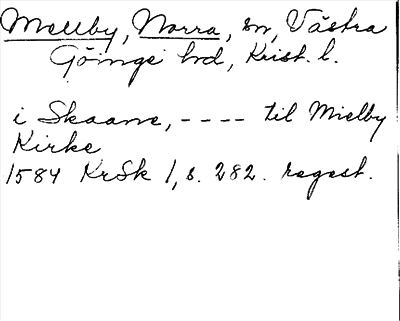 Mellby, Norra, sn, Västra
Göinge hd, Krist. l.
i Skaane, ---- til Mielby
Kirke
1584 KrSk 1, s. 282. regest.